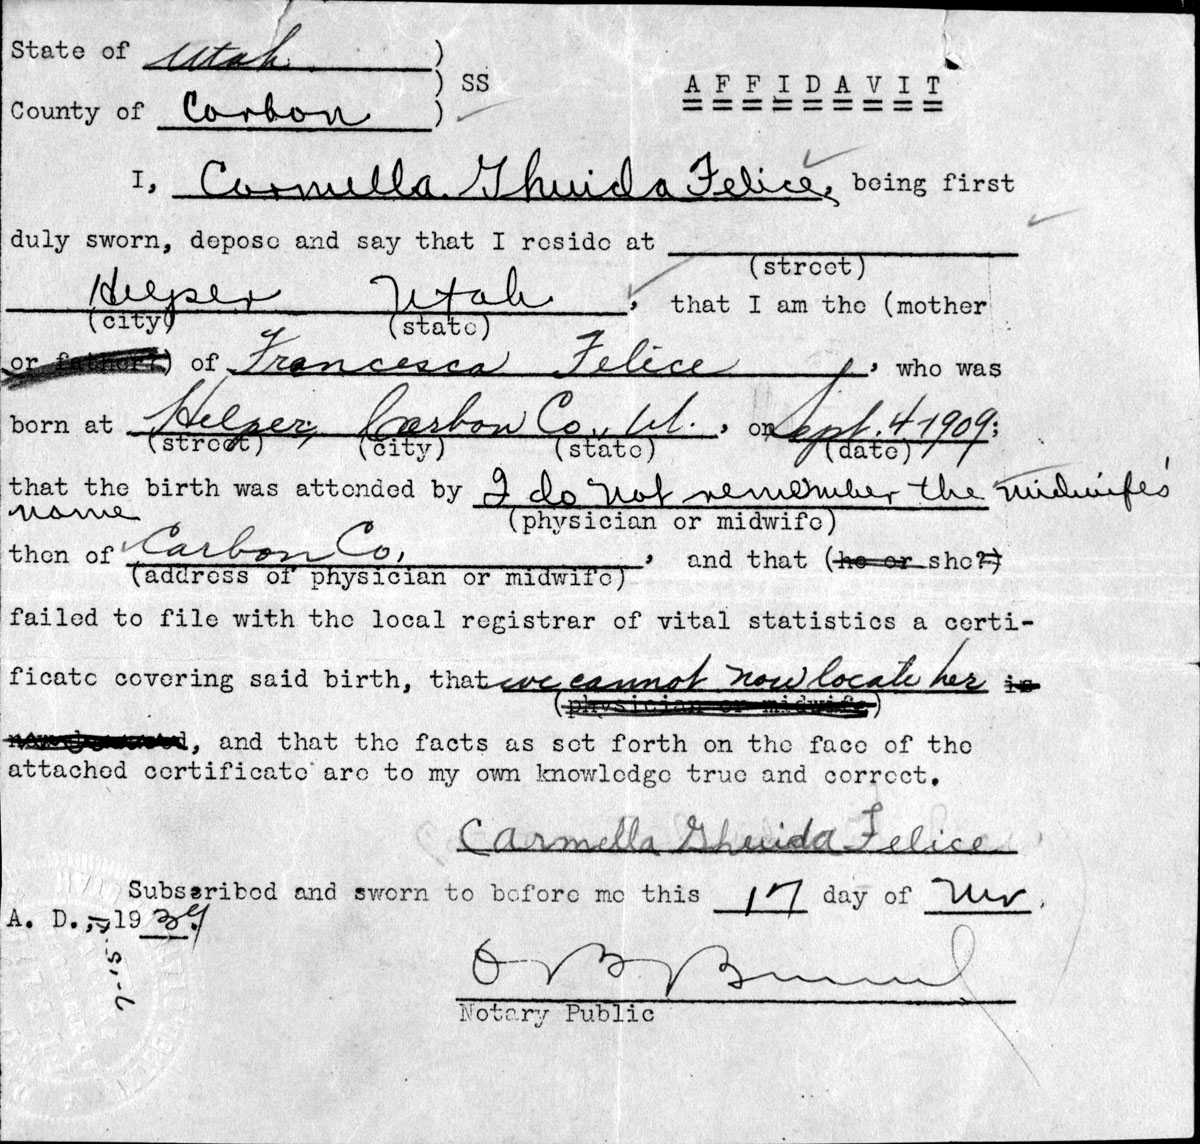 State of Utah )
) SS
AFFIDAVIT
County of Carbon )
I, Carmella Ghuida Felice, being first
duly sworn, depose and say that I reside at
(street)
Helper Utah, that I am the (mother
(city) (state)
or father?) of Francesca Felice, who was
born at Helper, Carbon Co., Ut., on Sept. 4, 1909;
(street) (city) (state) (date)
that the birth was attended by I do not remember the midwife's
name
(physician or midwife)
then of Carbon Co., and that (he or she?)
(address of physician or midwife)
failed to file with the local registrar of vital statistics a certi-
ficate covering said birth, that we cannot now locate her is
(physician or midwife)
, and that the facts as set forth on the face of the
attached certificate are to my own knowledge true and correct.
Carmella Ghuida Felice
Subscribed and sworn to before me this 17 day of
A. D., 19
7-15
Notary Public